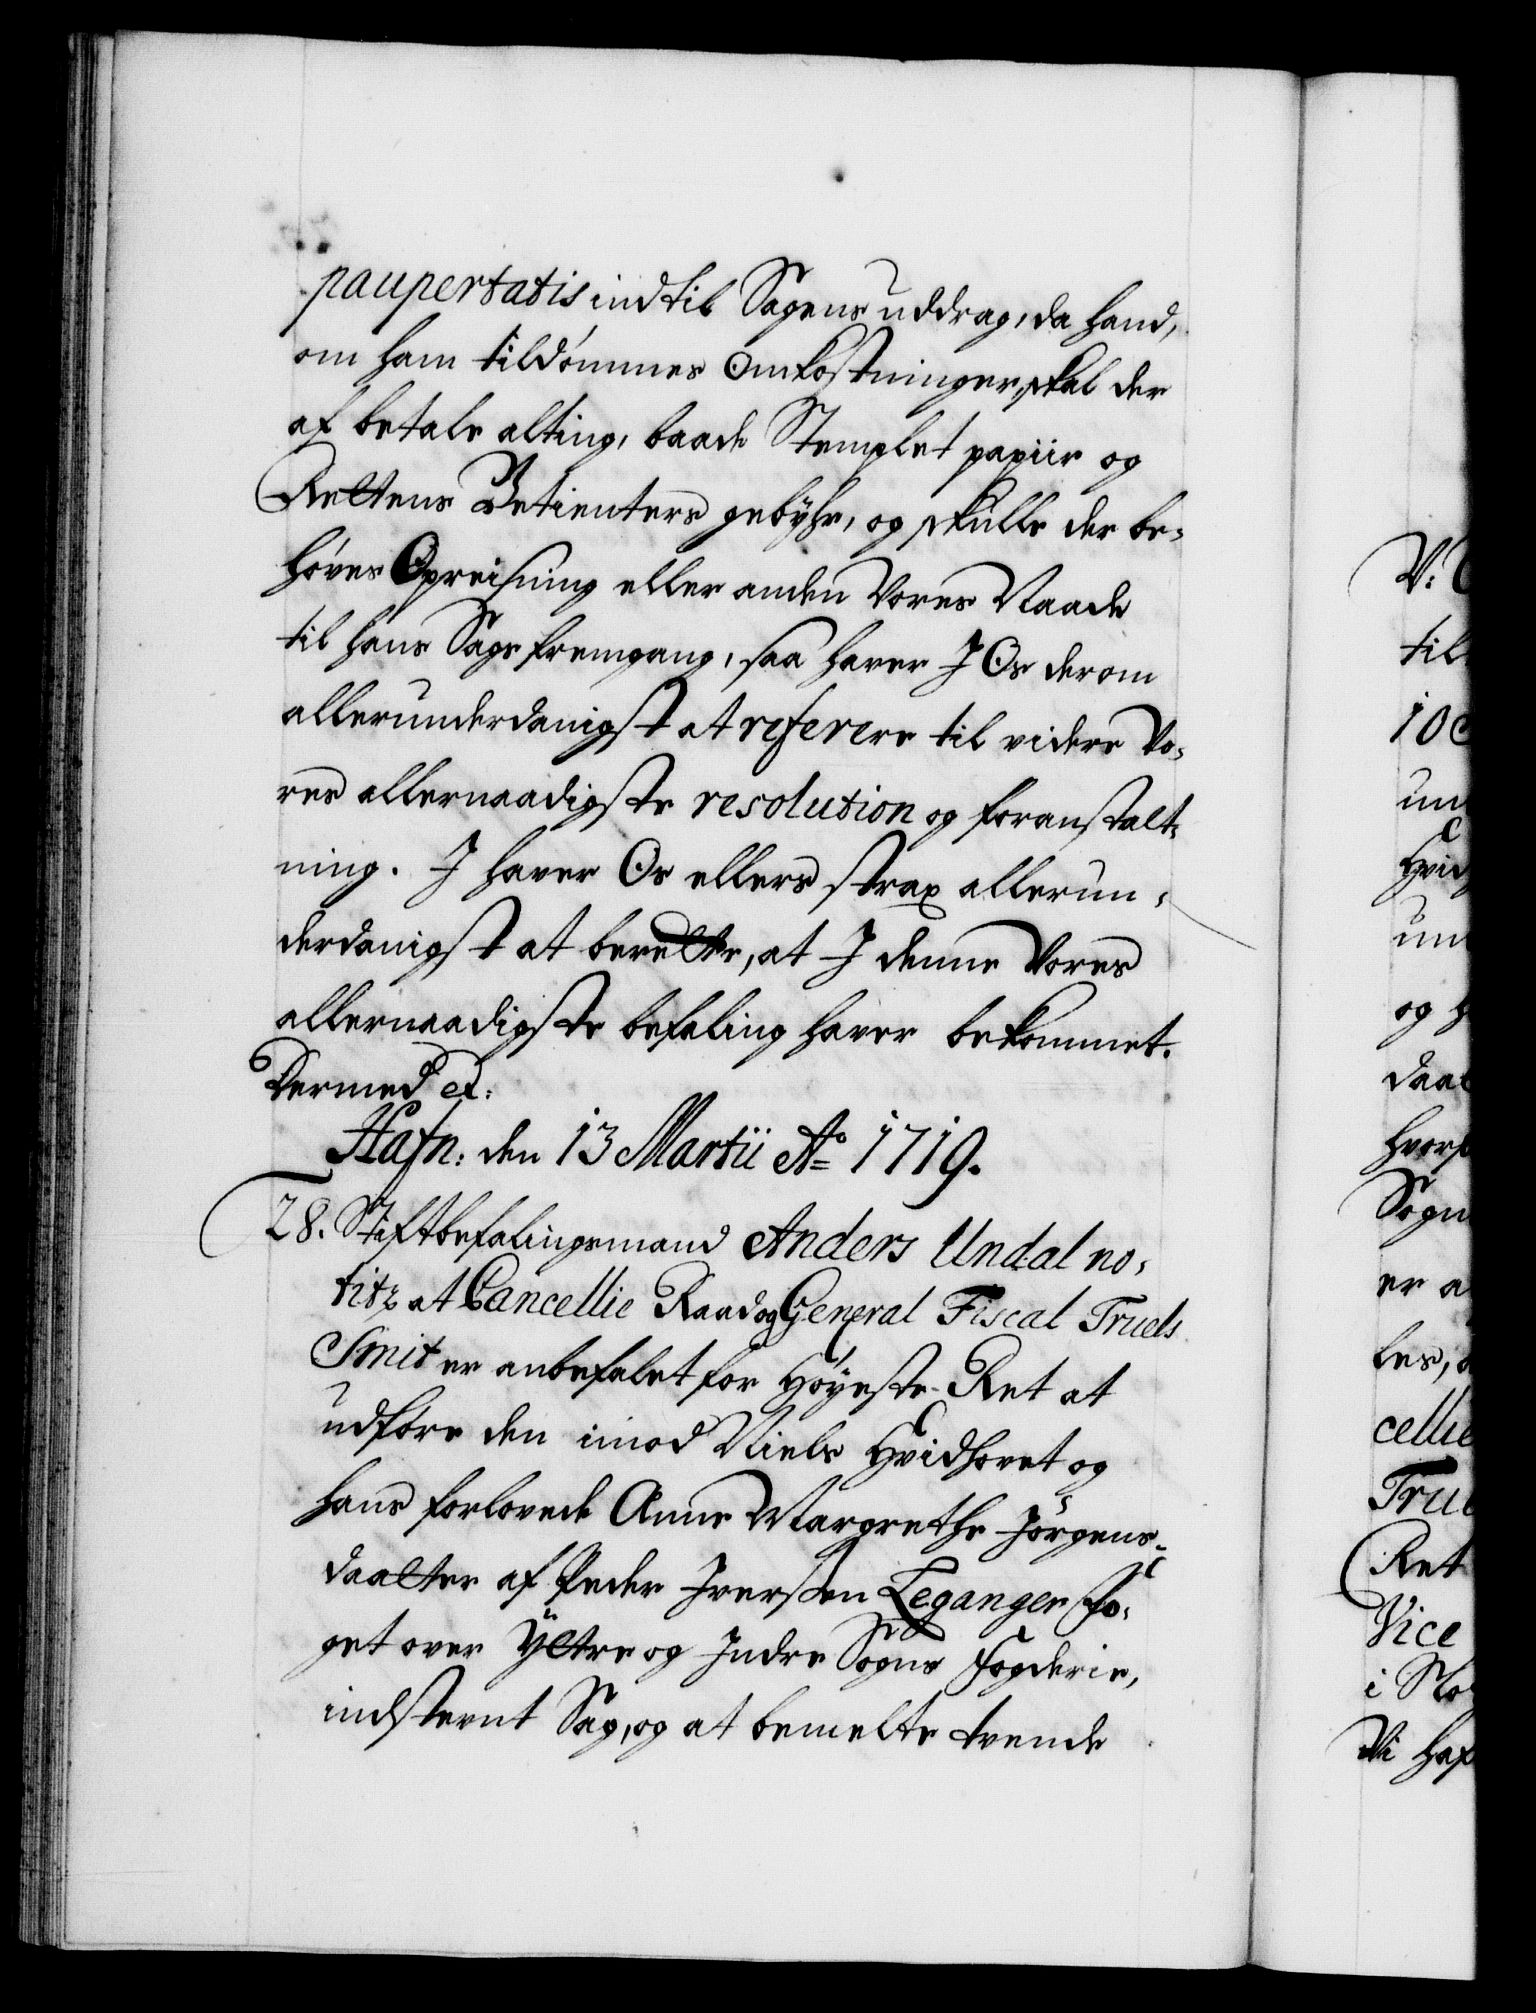 paupertatis indtil Sagens uddrag, da hand,
om ham tildömmes Omkostninger, skal der
af betale alting, baade Stemplet papiir og
Rettens Betienters gebÿhr, og skulle der be-
höves Opreisning eller anden Vores Naade
til hans Sags fremgang, saa haver J Os derom
allerunderdanigst at referere til videre Vo-
res allernaadigste resolution og foranstalt-
ning. J haver Os ellers strax allerun-
derdanigst at berette, at J denne Vores
allernaadigste befaling haver bekommet.
Dermed et:
Hafn: den 13 Martii Ao 1719.
28. Stiftbefalingsmand Anders Undal no-
titz at Cancellie Raad og General Fiscal Truels
Smit er anbefalet for Höÿeste-Ret at
udföre den imod Niels Hvidhovet og
hans forlovede Anne Margrethe Jörgens-
daatter af Peder Jverssen Leganger Fo-
get over Ÿttre og Jndre Sogns Fogderie,
indstevnt Sag, og at bemelte tvende
V:
til
10
un
Hvid
un
og h
daat
hvors
Sogn
er a
les,
cellie
Truel
Ret
Vice
i Sto
Vi haf